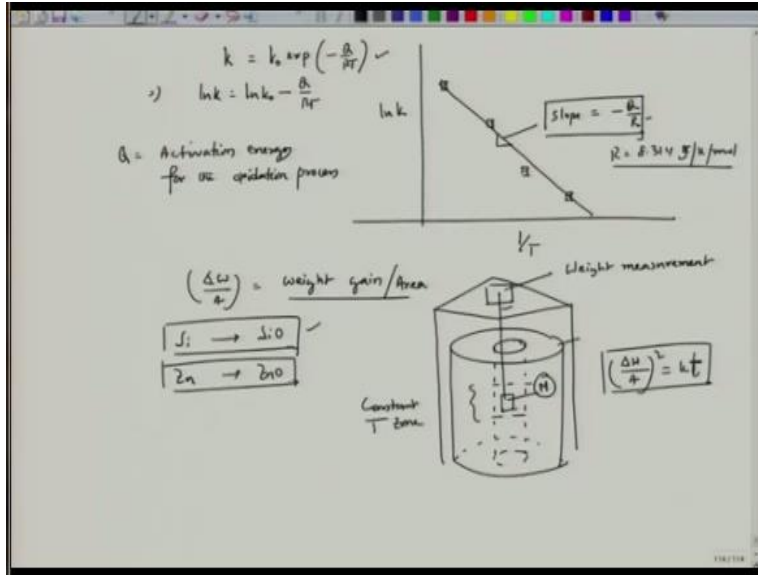 k = k₀ exp(-Q/RT) ✓
⇒) ln k = ln k₀ - Q/RT
Q = Activation energy
for the oxidation process
ln k
Slope = -Q/R
R = 8.314 J/K/mol
1/T
(ΔW/A) = weight gain/Area
Si → SiO ✓
Zn → ZnO
Weight measurement
M
Constant
T zone
(ΔW/A)² = kt
114/114